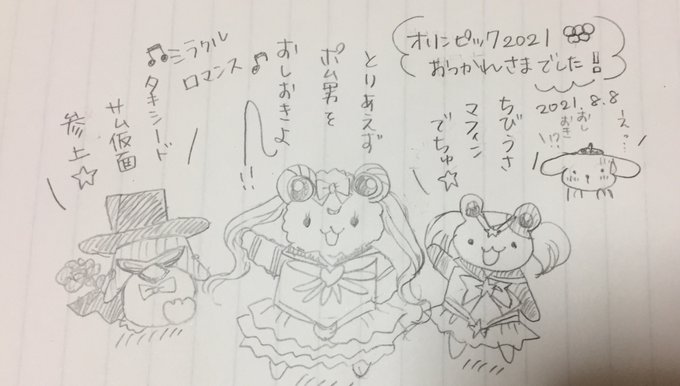 オリンピック2021
おつかれさまでした!!
2021.8.8
えっ…
おし
おき
!?
ちびうさ
マフィン
でちゅ☆
とりあえず
ポム男を
おしおきよ
!!
♫ミラクル
ロマンス♪
タキシード
サム仮面
参上☆